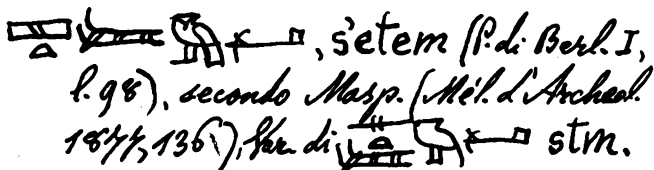 , s'etem (P. di Berl. I,
l. 98), secondo Masp. (Mél. d'Archéol.
1877, 136), Var. di stm.